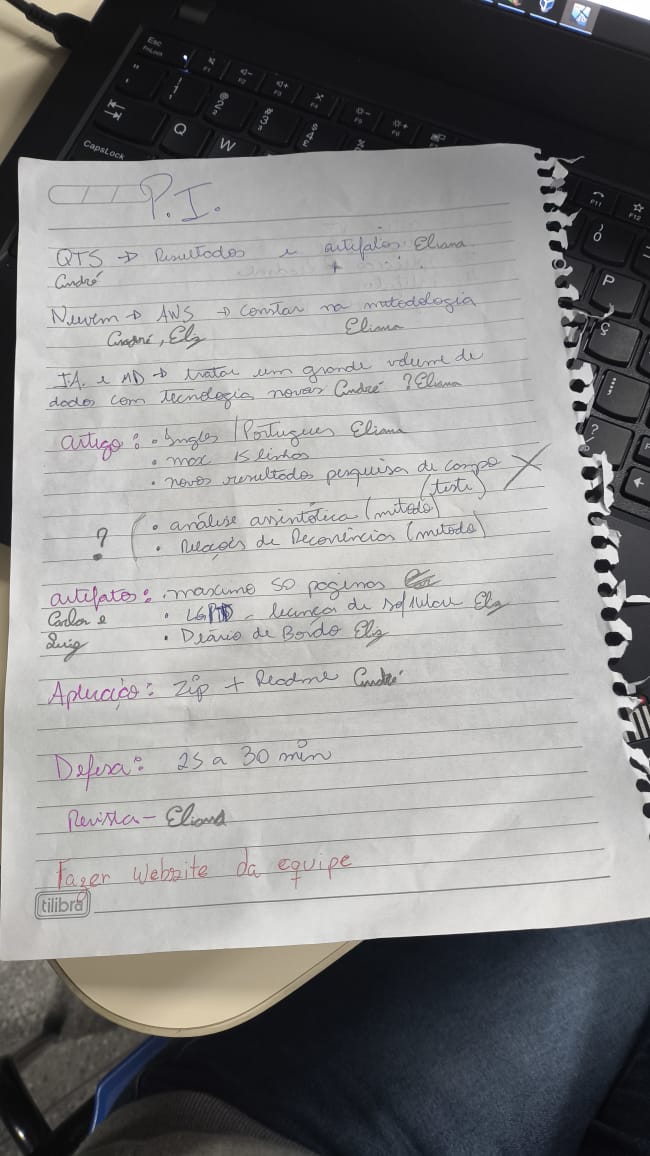 P.I.
QTS → Resultados e artefatos. Eliana
André
Nuvem → AWS → Constar na metodologia
André, Elz Eliana
I.A. e MD → tratar um grande volume de
dados com tecnologia novas André ? Eliana
artigo: • Ingles / Portugues Eliana
• max 15 linhas
• novos resultados pesquisa de campo X
(teste)
? ( • análise assintótica (metodo)
• Relações de Recorrências (metodo)
artefatos: • maximo 50 paginas
Carlos e • LGPD - licença de software Elz
Luig • Diário de Bordo Elz
Aplicação: Zip + Readme André
Defesa: 25 a 30 min
Revista - Eliana
Fazer Website da equipe
tilibra
Esc
FnLock
F1
F2
F3
F4
F5
F6
F11
F12
Q
W
P
Ç
CapsLock